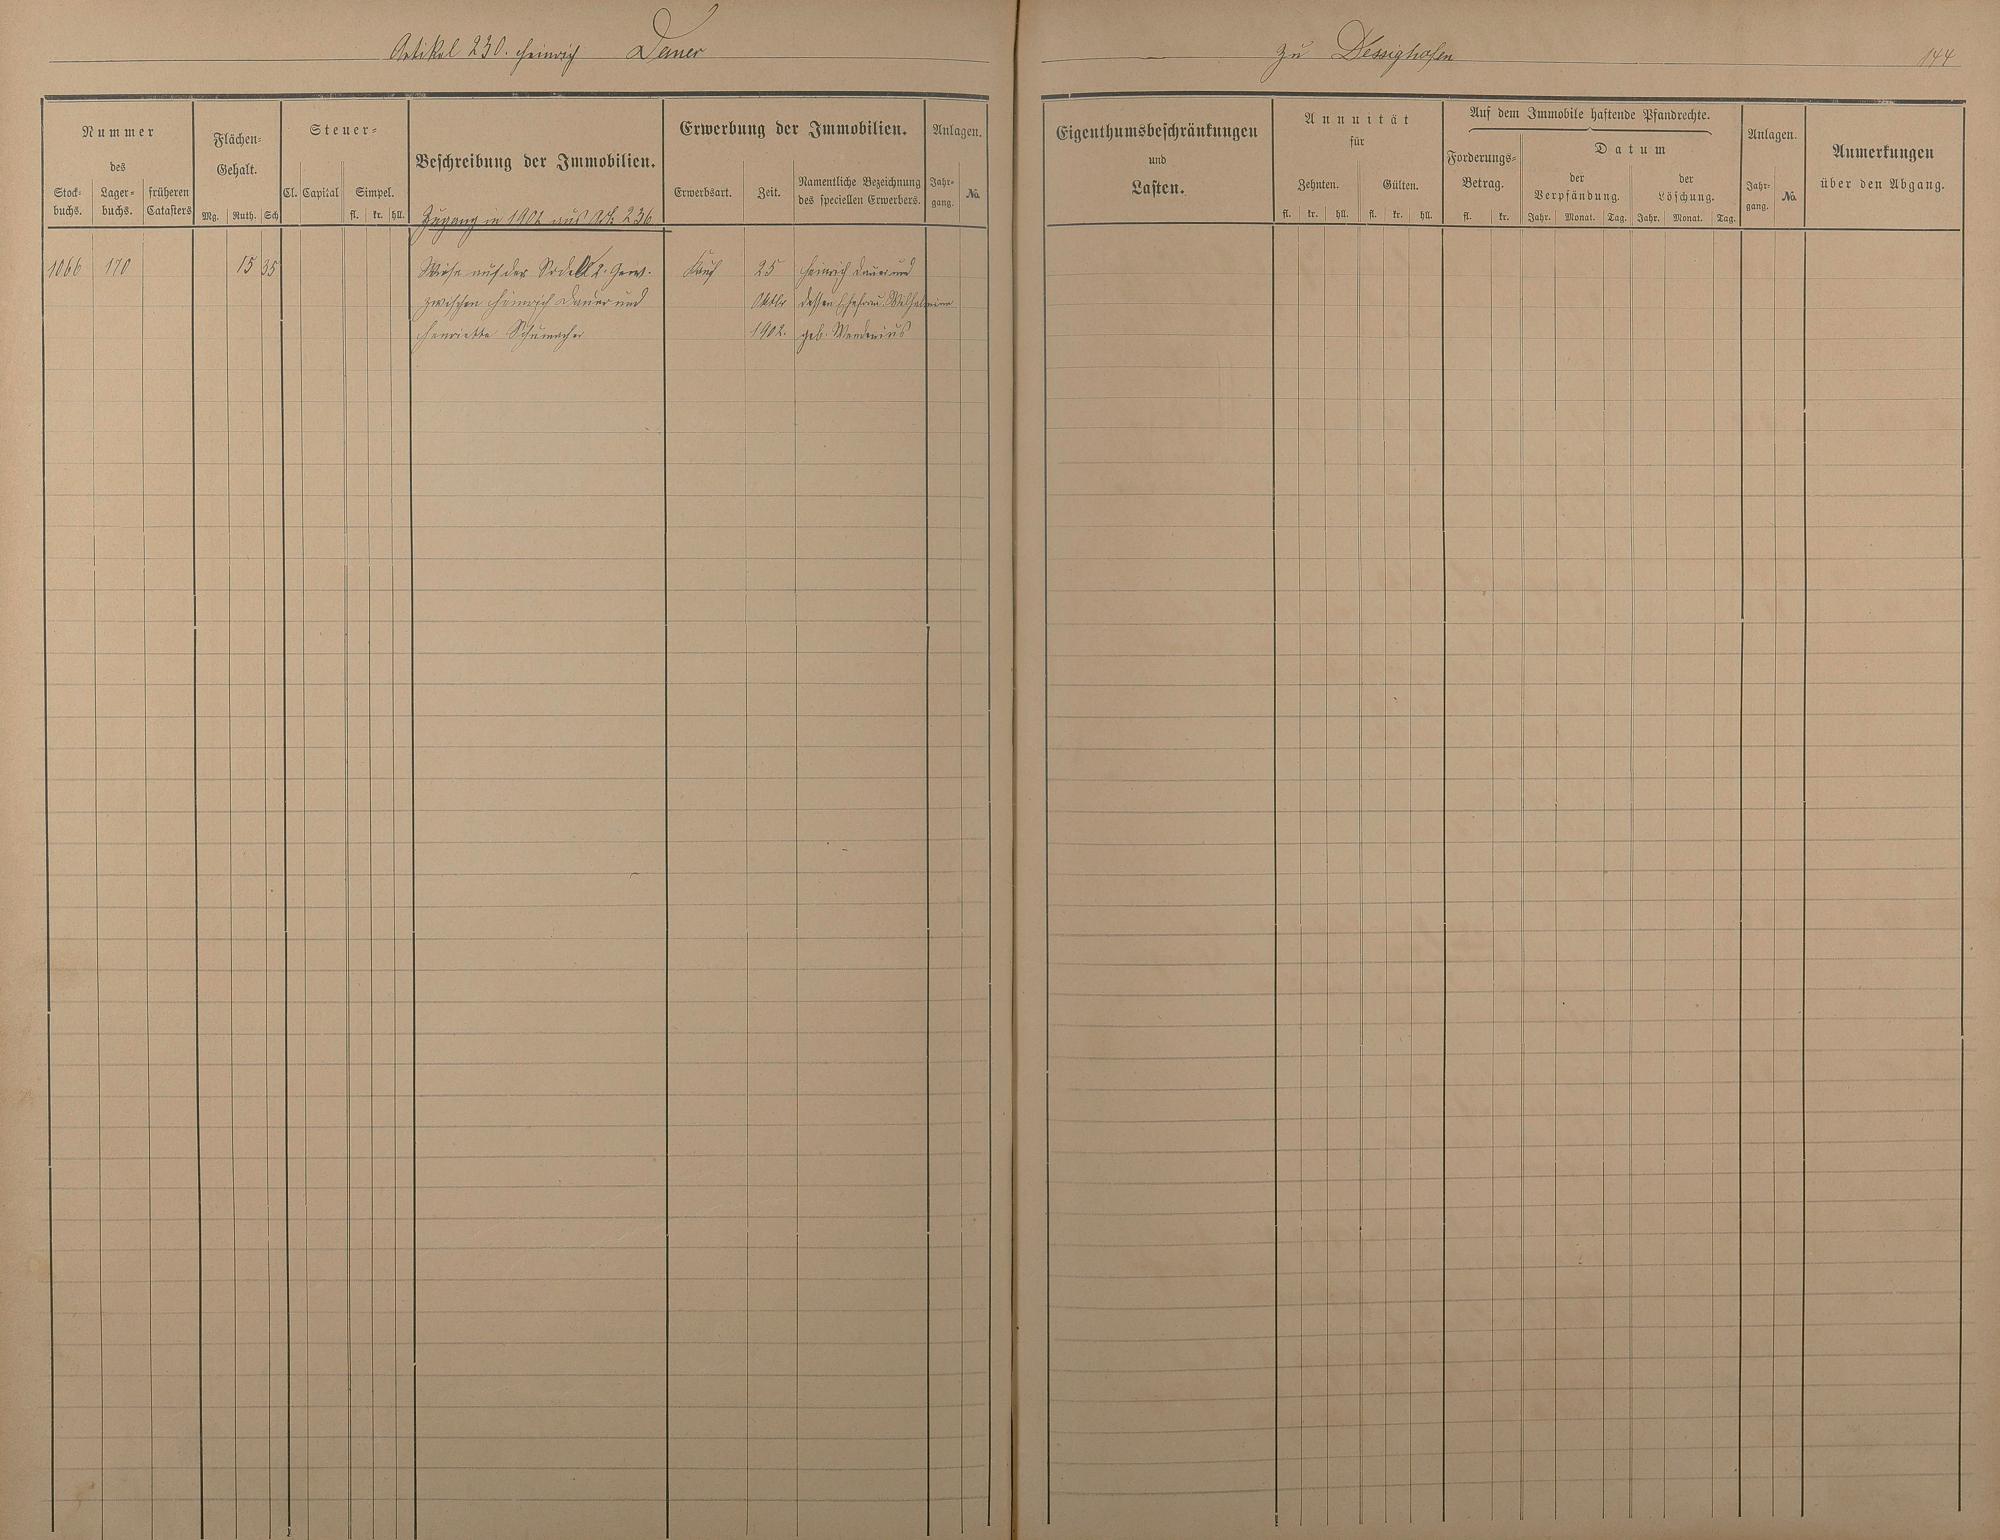 Artikel 230. Heinrich Dauer
zu Dessighofen
144
Nummer
des
Stock-
buchs.
Lager-
buchs.
früheren
Catasters
Flächen-
Gehalt.
Mg. Ruth. Sch
Steuer-
Cl. Capital Simpel.
fl. kr. hll.
Beschreibung der Immobilien.
Erwerbung der Immobilien.
Erwerbsart. Zeit.
Namentliche Bezeichnung
des speciellen Erwerbers.
Anlagen.
Jahr-
gang.
No.
Eigenthumsbeschränkungen
und
Lasten.
Annuität
für
Zehnten. Gülten.
fl. kr. hll. fl. kr. hll.
Auf dem Immobile haftende Pfandrechte.
Forderungs-
Betrag.
fl. kr.
Datum
der
Verpfändung.
Jahr. Monat. Tag.
der
Löschung.
Jahr. Monat. Tag.
Anlagen.
Jahr-
gang.
No.
Anmerkungen
über den Abgang.
Zugang in 1902 aus Art. 236
1066 170 15 35 Wiese auf der 2. Gew. Kauf 25 Heinrich Dauer und
zwischen Heinrich Dauer und Oktbr dessen Ehefrau Wilhelmine
Henriette Schumacher 1902. geb.